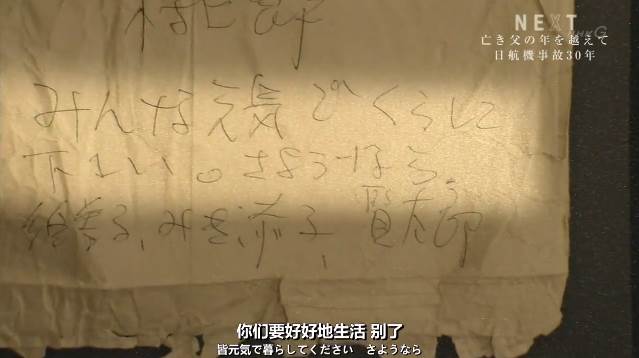 NEXT
亡き父の年を越えて
日航機事故30年
みんな元気でくらして
下さい。さようなら。
み き 添子 賢太郎
你们要好好地生活 别了
皆元気で暮らしてください　さようなら